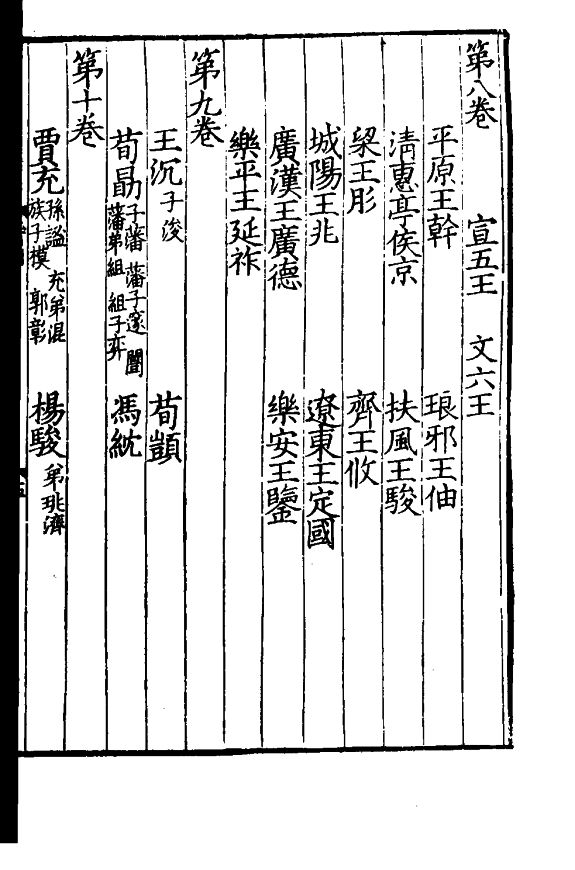 第八卷 宣五王 文六王
平原王幹 琅邪王伷
清惠亭侯京 扶風王駿
梁王肜 齊王攸
城陽王兆 遼東王定國
廣漢王廣德 樂安王鑒
樂平王延祚
第九卷
王沉 子浚 荀顗
荀勗 子藩 藩子邃 闓 藩弟組 組子奕 馮紞
第十卷
賈充 孫謐 充弟混 族子模 郭彰 楊駿 弟珧濟